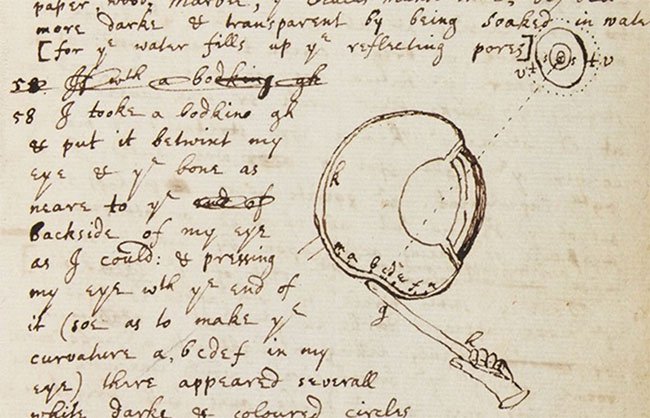 more darke & transparent by being soaked in water
[for ye water fills up ye reflecting pores]
58 If wth a bodking gh
58 I tooke a bodkine gh
& put it betwixt my
eye & ye bone as
neare to ye end of
backside of my eye
as I could: & pressing
my eye wth ye end of
it (soe as to make ye
curvature a, bcdef in my
eye) there appeared severall
white darke & coloured circles
v t s s t v
k
m a b c d e f n
g
h